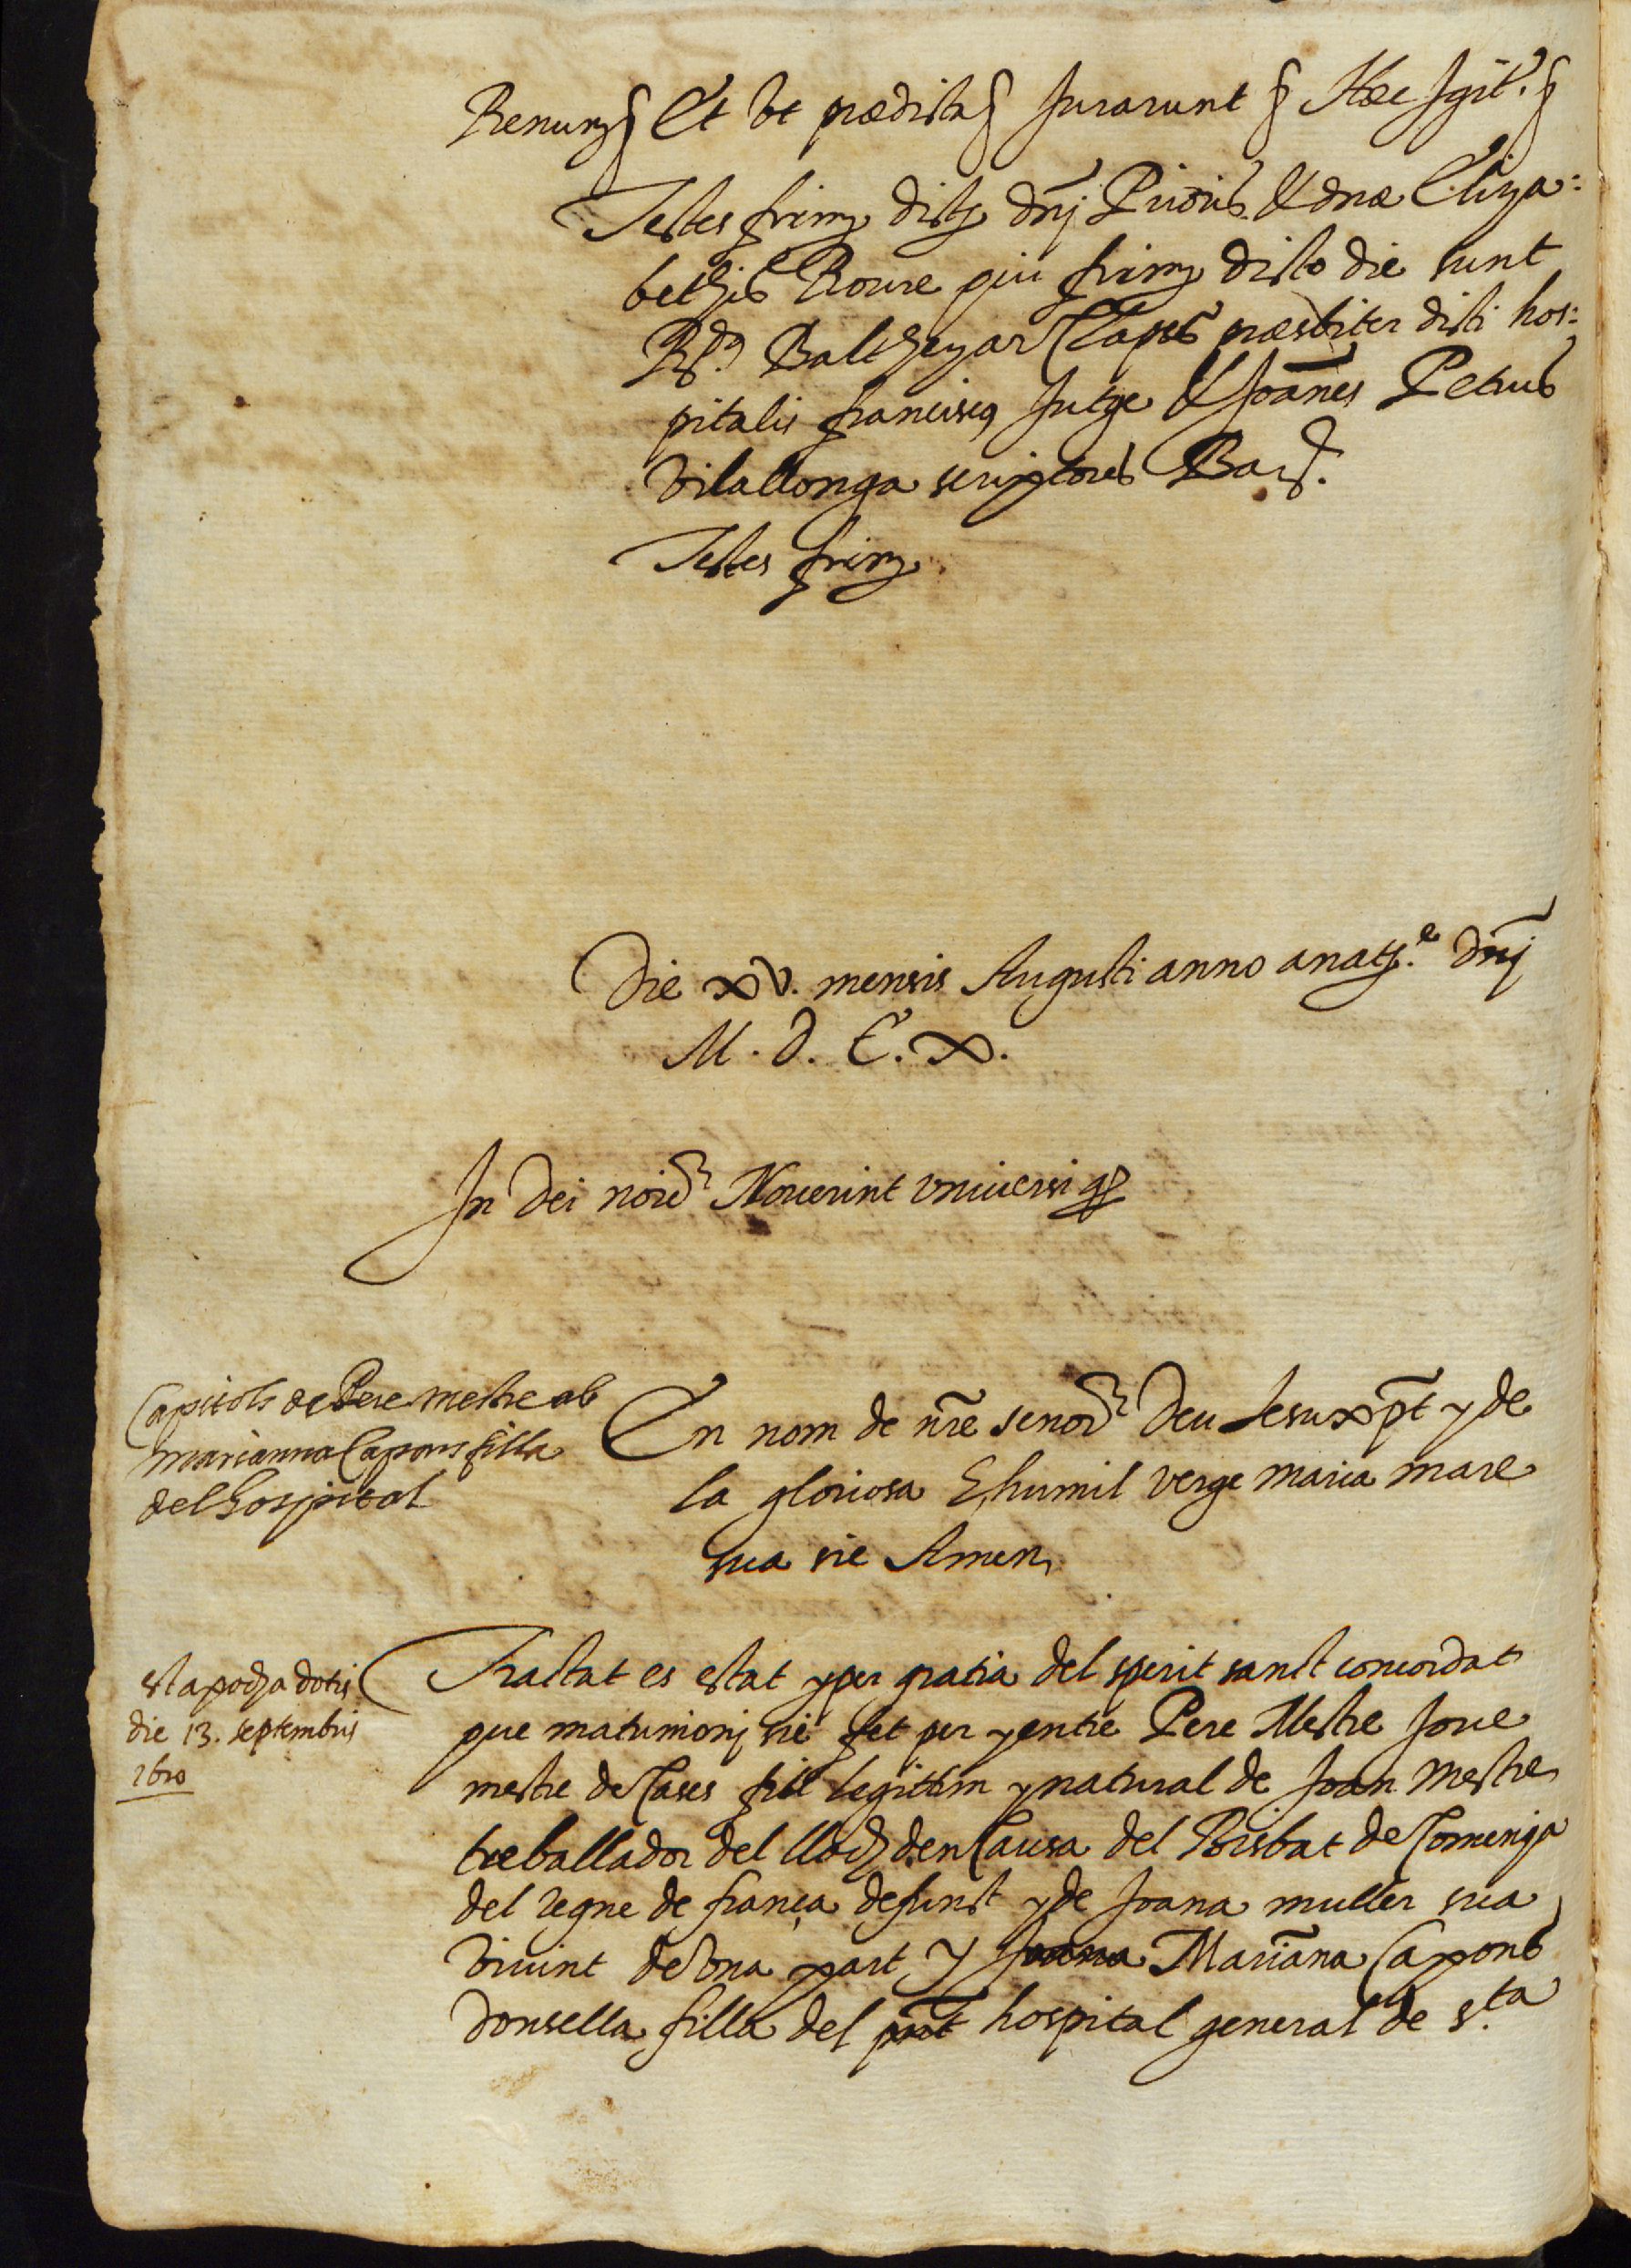 Renun§ Et ut prædicta§ Jurarunt § Hæc Igit.r §
Testes firmæ dictj dnj Prioris & dnæ Eliza:
bethis Roure qui firmæ dicto die sunt
Rdo. Balthezar Claper præsbiter dicti hos:
pitalis franciscq Jutge & Joañes Petrus
Vilallonga scriptores Barð.
Testes firmæ
Die xv. mensis Augusti anno a nattе. dnj
M. D. C. X.
In Dei noie Nouerint vniuersi qđ
Capitols de Pere mestre ab
marianna Capons filla
del hospital
En nom de nr̃e senor Deu Jesuxp̃t y de
la gloriosa E humil verge maria mare
sua sie Amen
est apocha dotis
die 13. septembris
1610
Tractat es estat y per gratia del sperit sanct concordat
que matrimonj sie fet per y entre Pere Mestre Joue
mestre de Cases fill legittim y natural de Joan Mestre
treballador del lloch den Causa del Bisbat de Comenja
del regne de frança defunct y de Joana muller sua
viuint de vna part Y Joanna Mariãna Capons
donsella filla del pnt̃ hospital general de s.ta